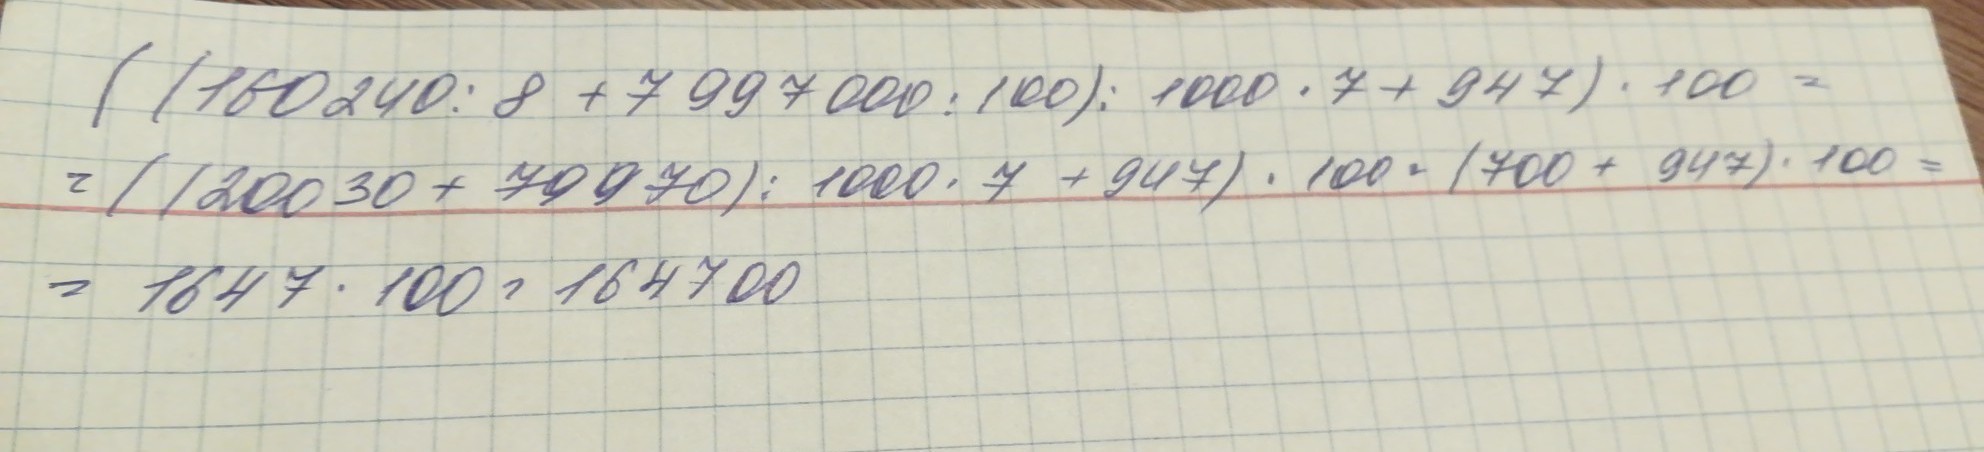 ((160240 : 8 + 7997000 : 100) : 1000 · 7 + 947) · 100 =
= ((20030 + 79970) : 1000 · 7 + 947) · 100 = (700 + 947) · 100 =
= 1647 · 100 = 164700